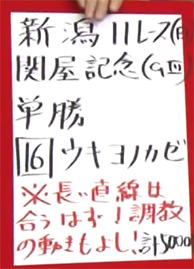 新潟11レース(日)
関屋記念(GⅢ)
単勝
16 ウキヨノカゼ
※長い直線は
合うはず!調教
の動きもよし!計5000